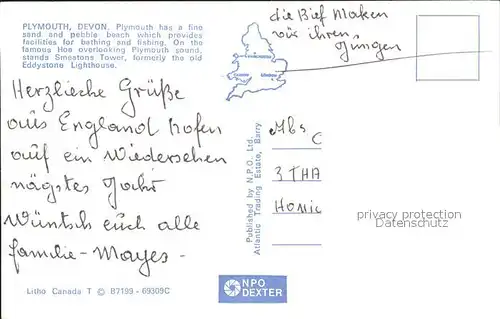 PLYMOUTH, DEVON. Plymouth has a fine
sand and pebble beach which provides
facilities for bathing and fishing. On the
famous Hoe overlooking Plymouth sound,
stands Smeatons Tower, formerly the old
Eddystone Lighthouse.
die Bief Maken
wir ihren
Jungen
Herzlieche Grüße
aus England hofen
auf ein Wiedersehen
nägstes Jahr
Wüntsch euch alle
familie - Mayes -
Published by N.P.O. Ltd.
Atlantic Trading Estate, Barry
Abs
C
3 THA
HOMIC
privacy protection
Datenschutz
NPO
DEXTER
Litho Canada T © B7199 - 69309C